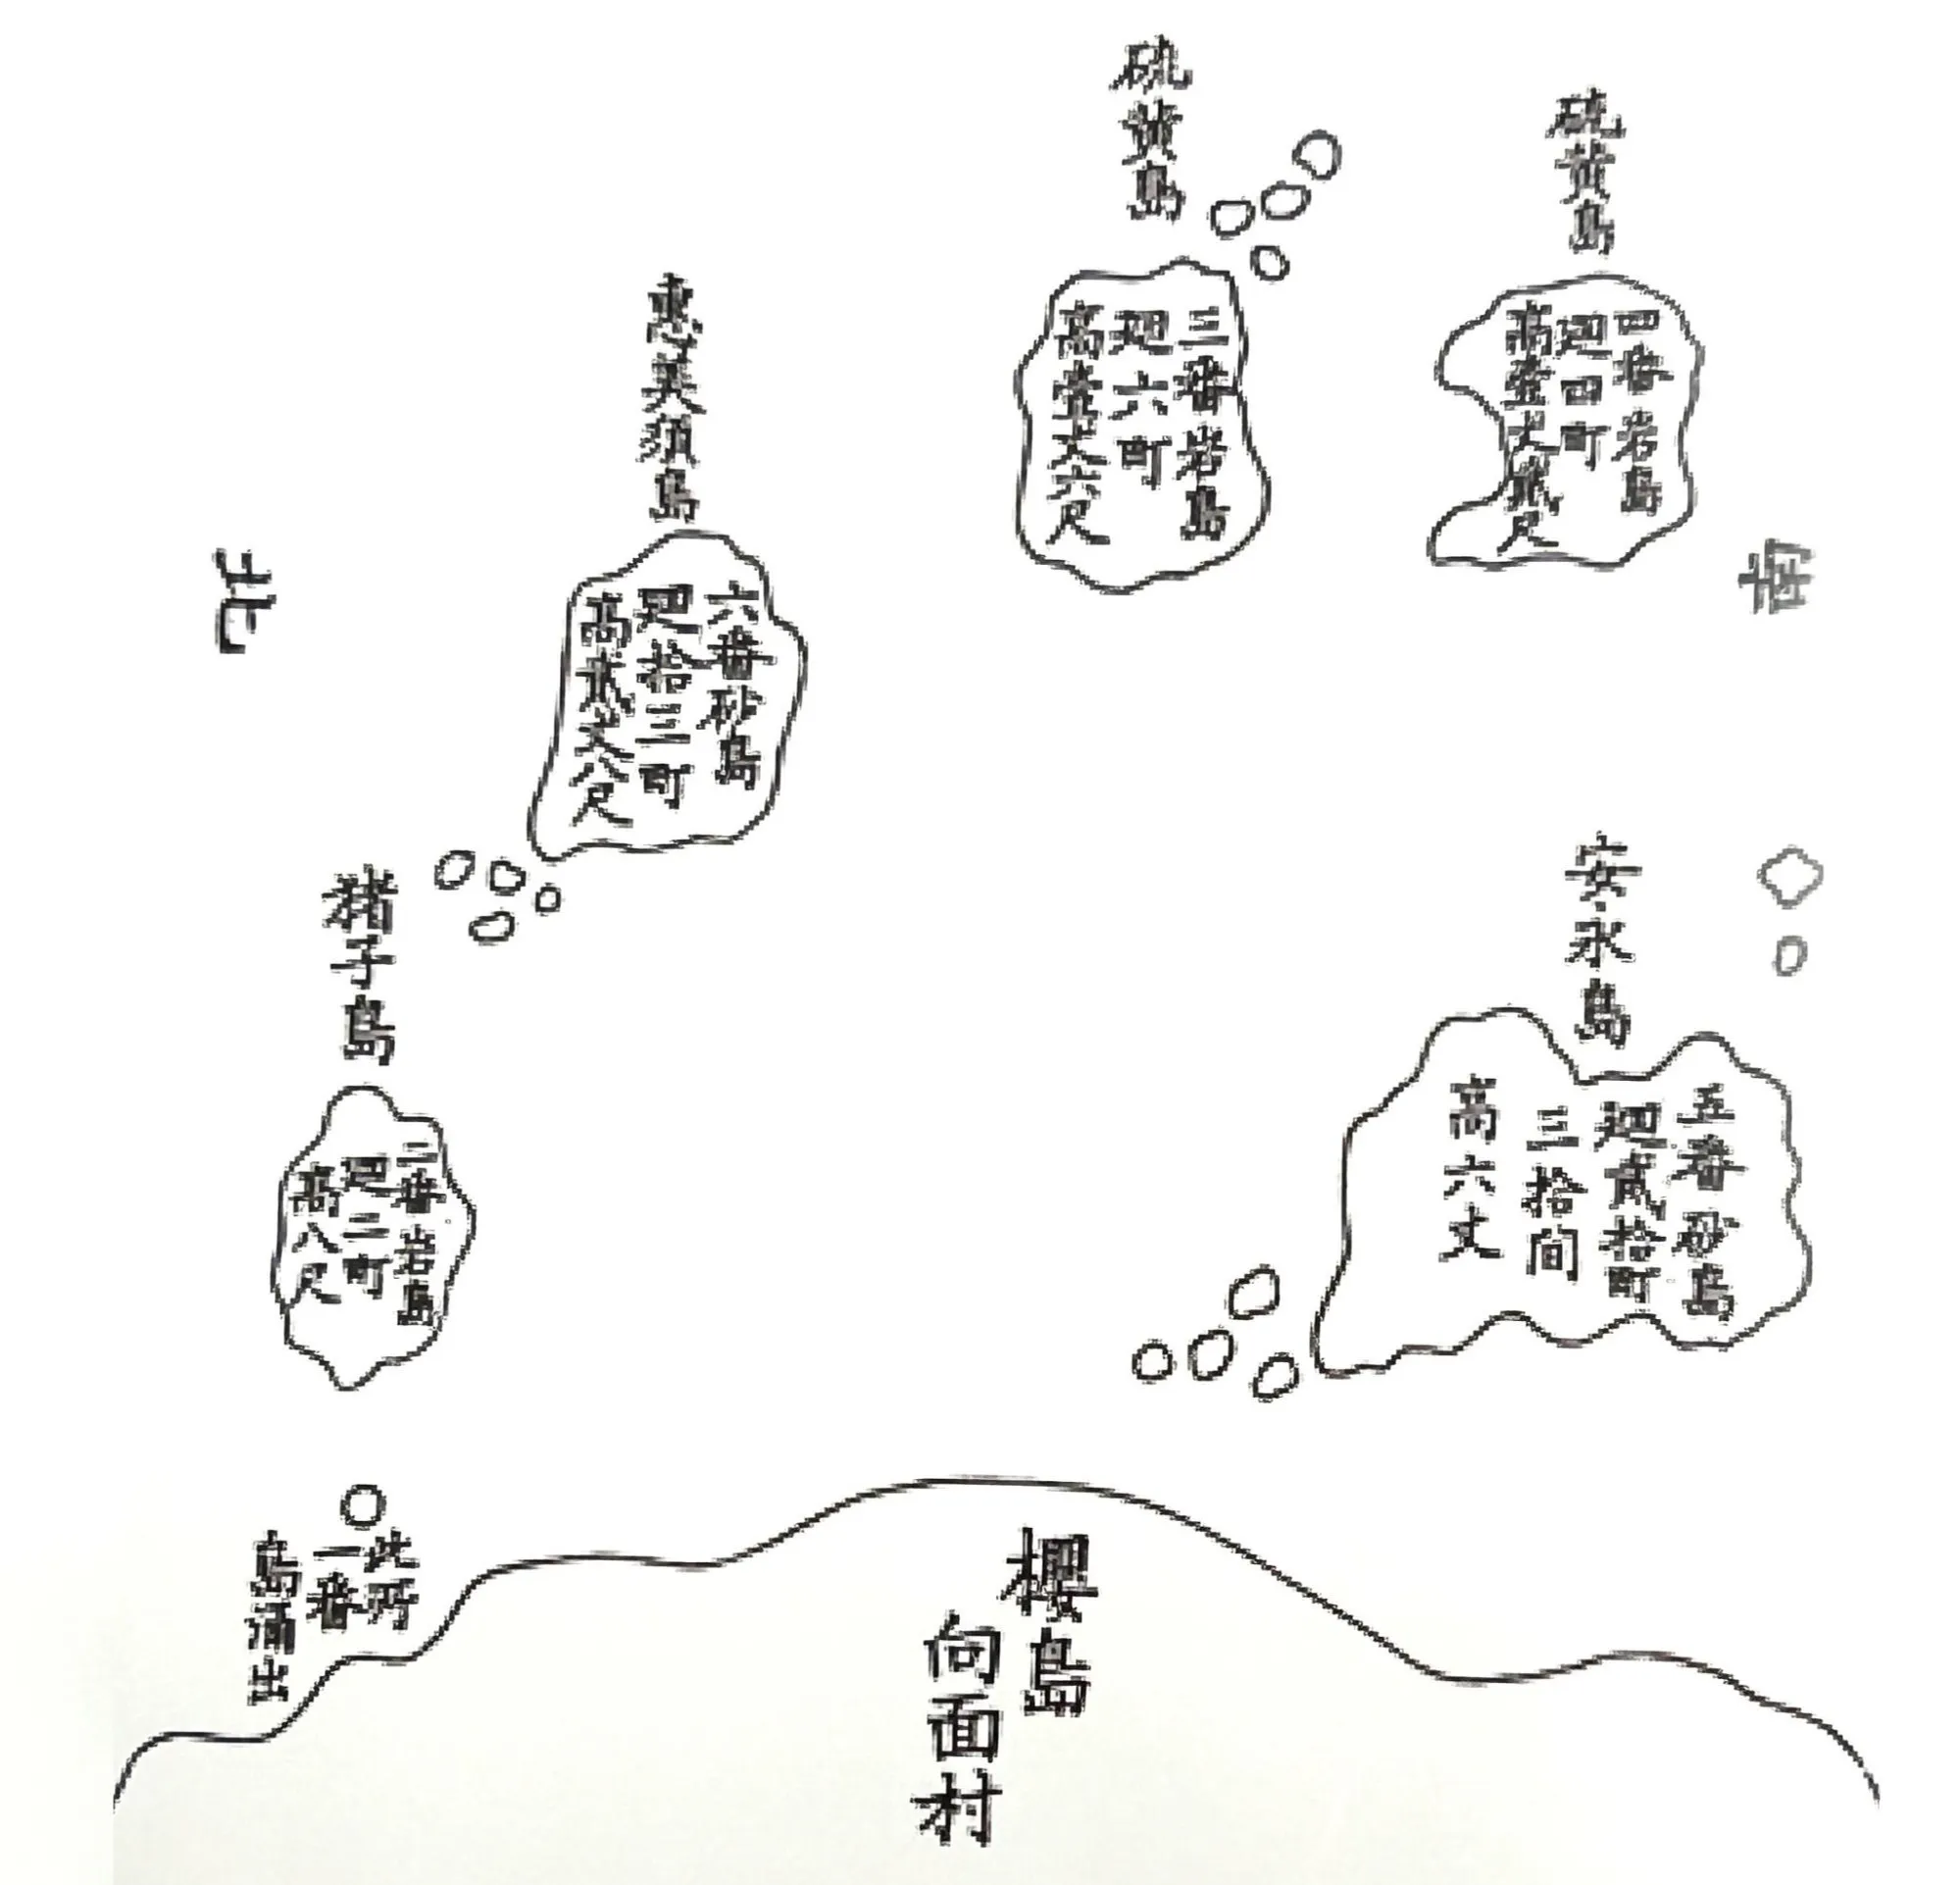 南
硫黄島
四番岩島
廻四町
高壹丈貳尺
硫黄島
三番岩島
廻六町
高壹丈六尺
惠美須島
六番砂島
廻拾三町
高貳丈八尺
北
安永島
五番砂島
廻貳拾町
三拾間
高六丈
猪子島
二番岩島
廻三町
高八尺
此所
一番
島涌出
櫻島
向面村